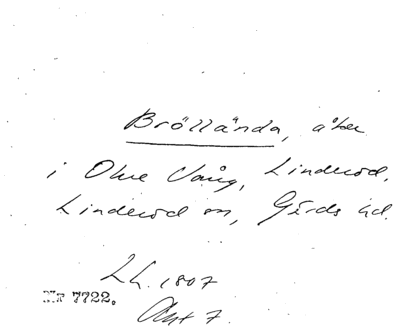 Bröllända, åker
i Olive Vång, Linderöd,
Linderöd sn, Gärds hd.
LL. 1807
Akt 7.
Nr 7722.